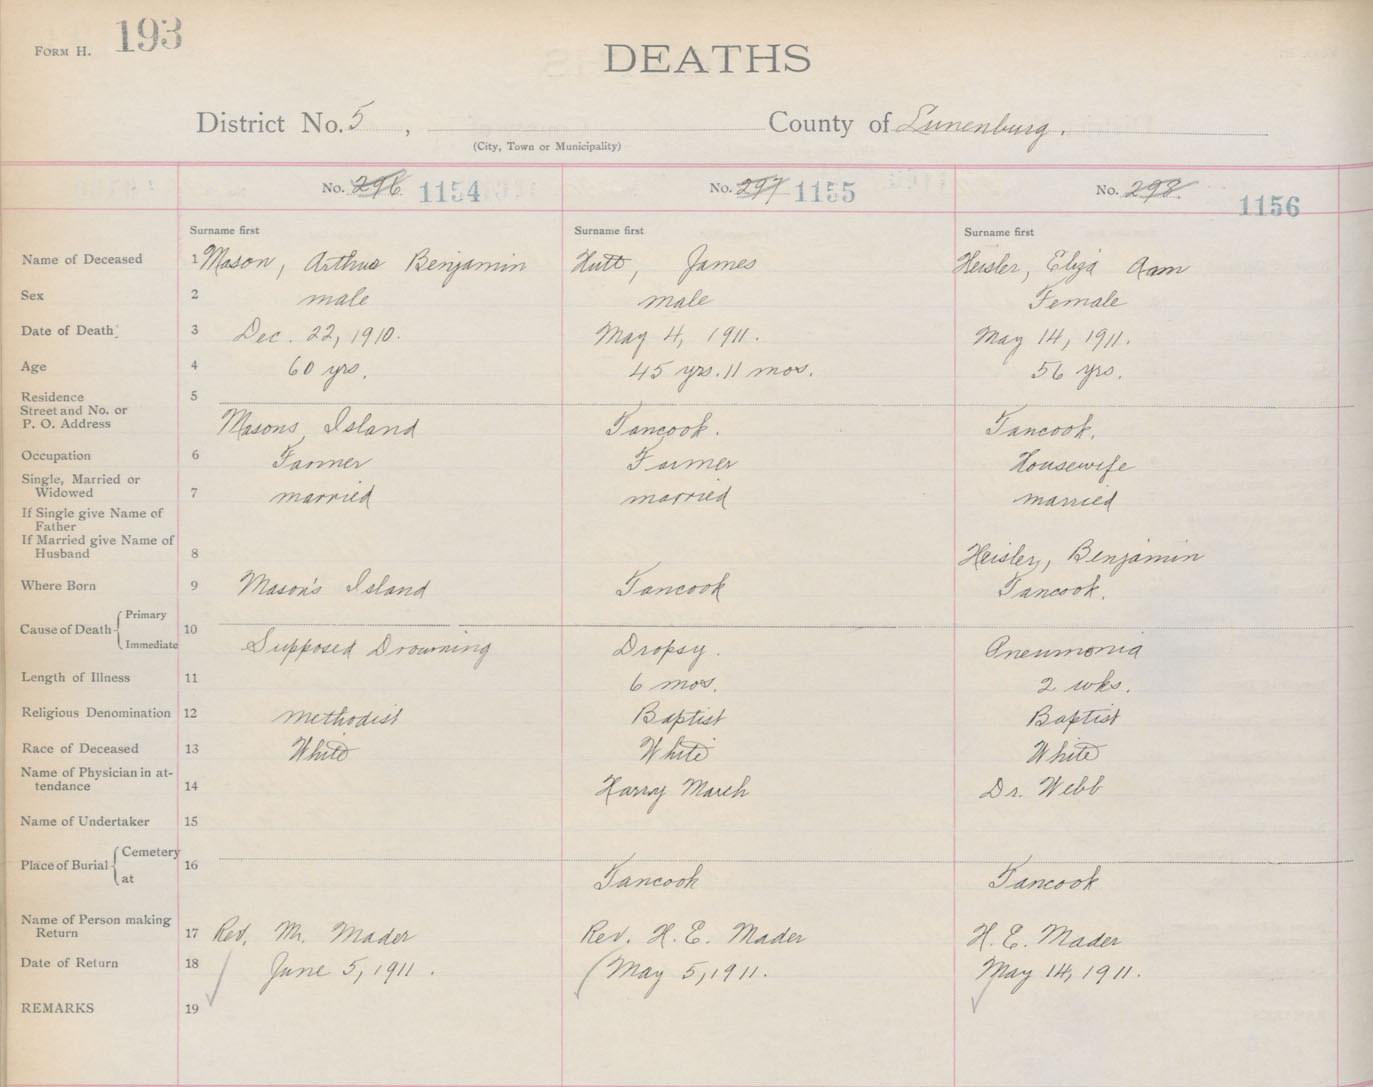 FORM H. 193
DEATHS
District No. 5, County of Lunenburg.
(City, Town or Municipality)
No. 296 1154 No. 297 1155 No. 298 1156
Surname first Surname first Surname first
Name of Deceased 1 Mason, Arthur Benjamin Hutt, James Heisler, Eliza Aam
Sex 2 male male Female
Date of Death 3 Dec. 22, 1910. May 4, 1911. May 14, 1911.
Age 4 60 yrs. 45 yrs. 11 mos. 56 yrs.
Residence 5
Street and No. or
P. O. Address Masons Island Tancook. Tancook.
Occupation 6 Farmer Farmer Housewife
Single, Married or
Widowed 7 married married married
If Single give Name of
Father
If Married give Name of
Husband 8 Heisler, Benjamin
Where Born 9 Mason's Island Tancook Tancook.
Cause of Death Primary 10
Immediate Supposed Drowning Dropsy. Pneumonia
Length of Illness 11 6 mos. 2 wks.
Religious Denomination 12 Methodist Baptist Baptist
Race of Deceased 13 White White White
Name of Physician in at-
tendance 14 Harry March Dr. Webb
Name of Undertaker 15
Place of Burial Cemetery 16
at Tancook Tancook
Name of Person making
Return 17 Rev. Mr. Mader Rev. H. E. Mader H. E. Mader
Date of Return 18 June 5, 1911. May 5, 1911. May 14, 1911.
REMARKS 19